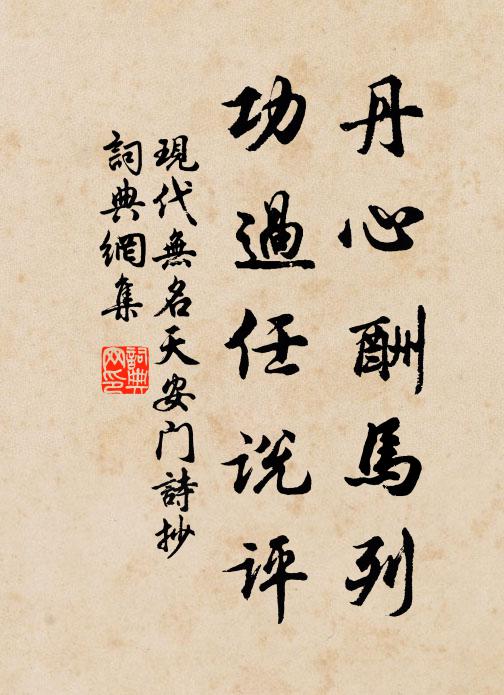 丹心酬馬列
功過任説評
現代無名天安门詩抄
詞典網集
詞典
网印